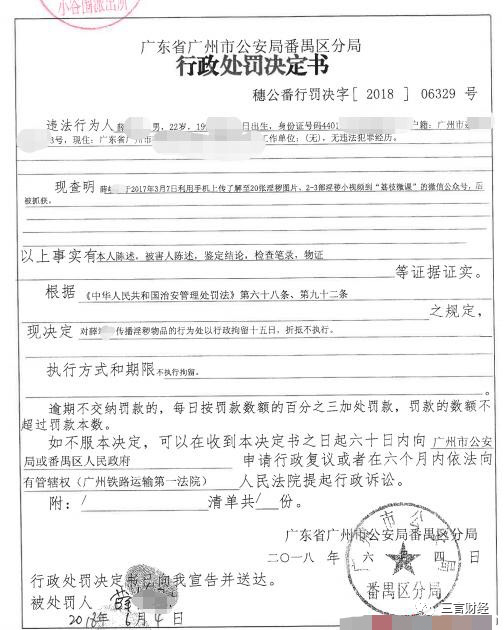 小谷围派出所
广东省广州市公安局番禺区分局
行政处罚决定书
穗公番行罚决字 [ 2018 ] 06329 号
违法行为人 男，22岁，19 日出生，身份证号码4401 户籍：广州市
3号，现住：广东省广州市 工作单位：(无)，无违法犯罪经历。
现查明 薛 于2017年3月7日利用手机上传了解至20张淫秽图片、2-3部淫秽小视频到“荔枝微课”的微信公众号，后
被抓获。
以上事实有本人陈述，被害人陈述，鉴定结论，检查笔录，物证
等证据证实。
根据 《中华人民共和国治安管理处罚法》第六十八条、第九十二条
之规定，
现决定 对薛 传播淫秽物品的行为处以行政拘留十五日，折抵不执行。
执行方式和期限 不执行拘留。
。
逾期不交纳罚款的，每日按罚款数额的百分之三加处罚款，罚款的数额不
超过罚款本数。
如不服本决定，可以在收到本决定书之日起六十日内向 广州市公安
局或番禺区人民政府 申请行政复议或者在六个月内依法向
有管辖权（广州铁路运输第一法院） 人民法院提起行政诉讼。
附：/ 清单共/ 份。
广东省广州市公安局番禺区分局
二〇一八年 六 四 日
广州市公安局
番禺区分局
行政处罚决定书已向我宣告并送达。
被处罚人 薛
2018年6月4日
三言财经